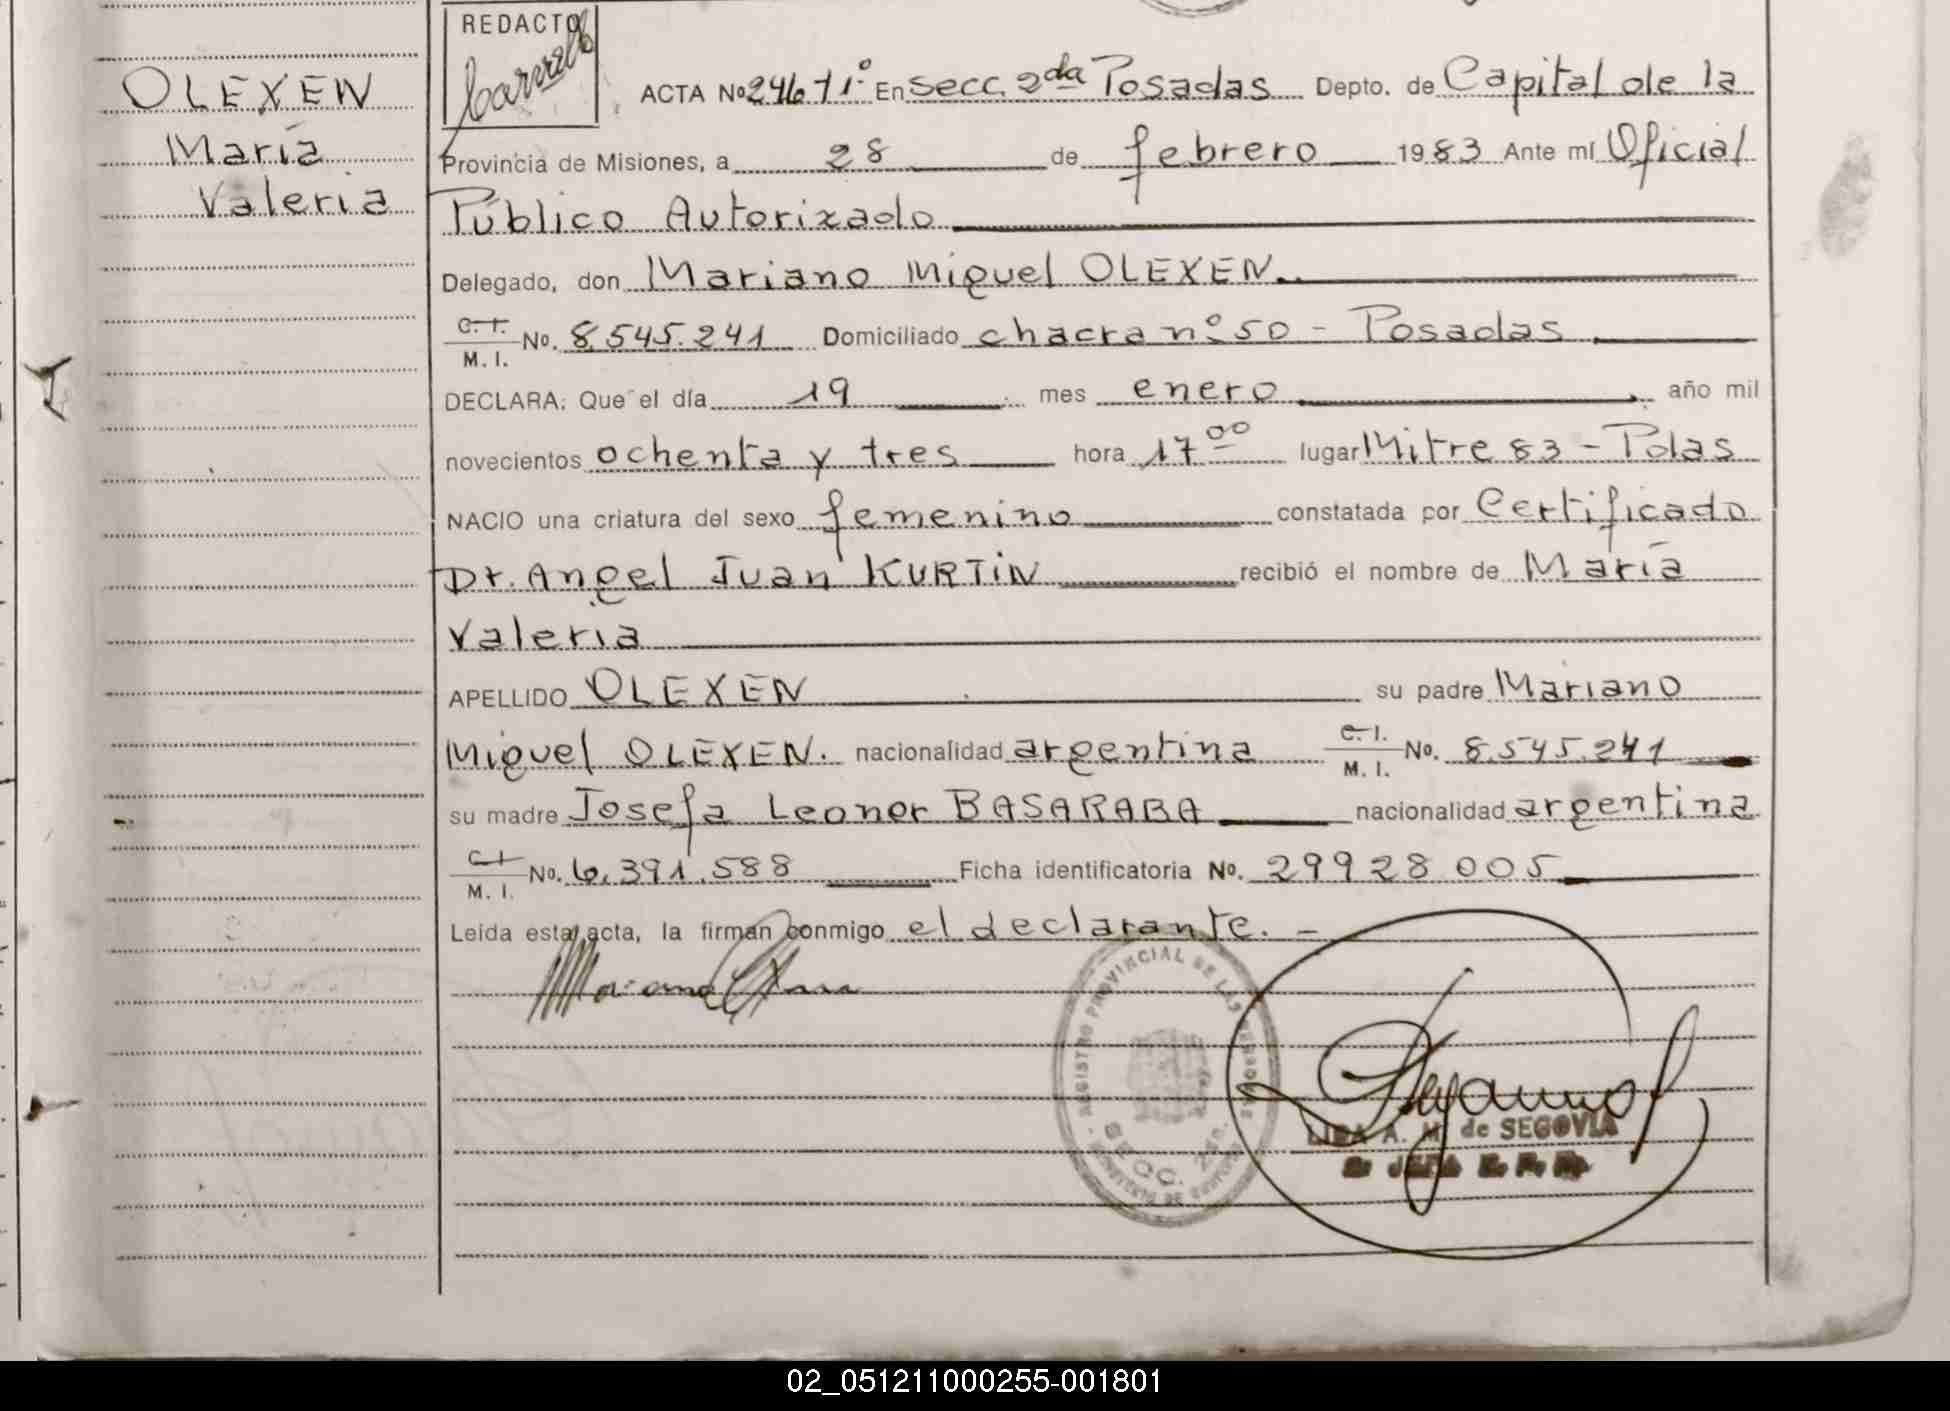 REDACTO
OLEXEN
María
Valeria
ACTA No 246 T1º En Secc. 2da Posadas Depto. de Capital de la
Provincia de Misiones, a 28 de febrero 1983 Ante mí Oficial
Público Autorizado
Delegado, don Mariano Miguel OLEXEN.
C. I.
M. I. No. 8.545.241 Domiciliado chacra nº 50 - Posadas
DECLARA: Que el día 19 mes enero año mil
novecientos ochenta y tres hora 17 00 lugar Mitre 83 - Pdas
NACIO una criatura del sexo femenino constatada por Certificado
Dr. Angel Juan KURTIN recibió el nombre de María
Valeria
APELLIDO OLEXEN su padre Mariano
Miguel OLEXEN. nacionalidad argentina C. I.
M. I. No. 8.545.241
su madre Josefa Leonor BASARABA nacionalidad argentina
C. I.
M. I. No. 6.391.588 Ficha identificatoria No. 29928005
Leída esta acta, la firman conmigo el declarante. -
REGISTRO PROVINCIAL DE LAS PERSONAS
SECC. 2da.
LIBA A. M. de SEGOVIA
02_051211000255-001801